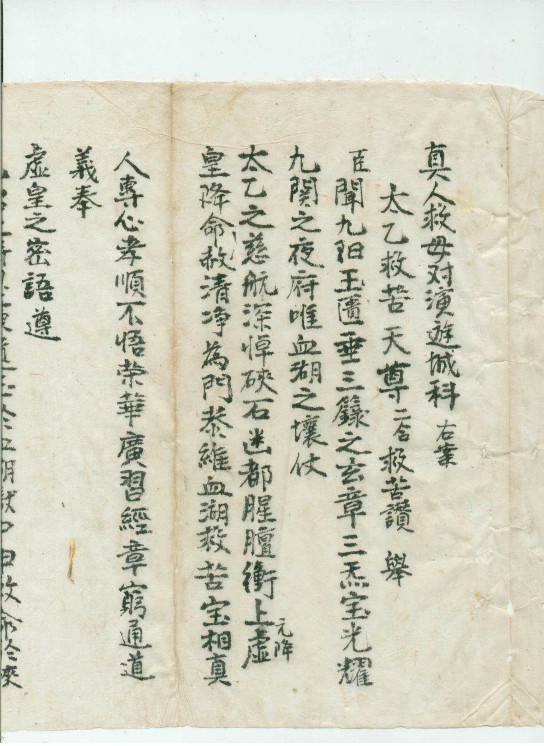 真人救母对演遊城科 右案
太乙救苦天尊 二合 救苦讚 舉
臣聞九阳玉匱垂三籙之玄章三炁宝光耀
九関之夜府唯血湖之壤仗
太乙之慈航深悼硤石迷都腥膻衝上虚 元降
皇降命救清净為門恭維血湖救苦宝相真
人專心孝順不悟荣華廣習經章窮通道
義奉
虚皇之密語遵